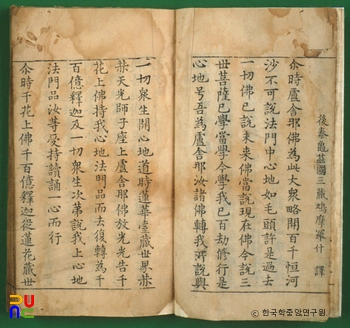 後秦龜茲國三藏鳩摩羅什 譯
尒時盧舍那佛為此大衆略開百千恒河
沙不可說法門中心地如毛頭許是過去
一切佛已說未來佛當說現在佛今說三
世菩薩已學當學今學我已百劫修行是
心地号吾為盧舍那汝諸佛轉我所說與
一切衆生開心地道時蓮華臺藏世界赫
赫天光師子座上盧舍那佛放光光告千
花上佛持我心地法門品而去復轉為千
百億釋迦及一切衆生次第說我上心地
法門品汝等受持讀誦一心而行
尒時千花上佛千百億釋迦從蓮花藏世
한국학중앙연구원